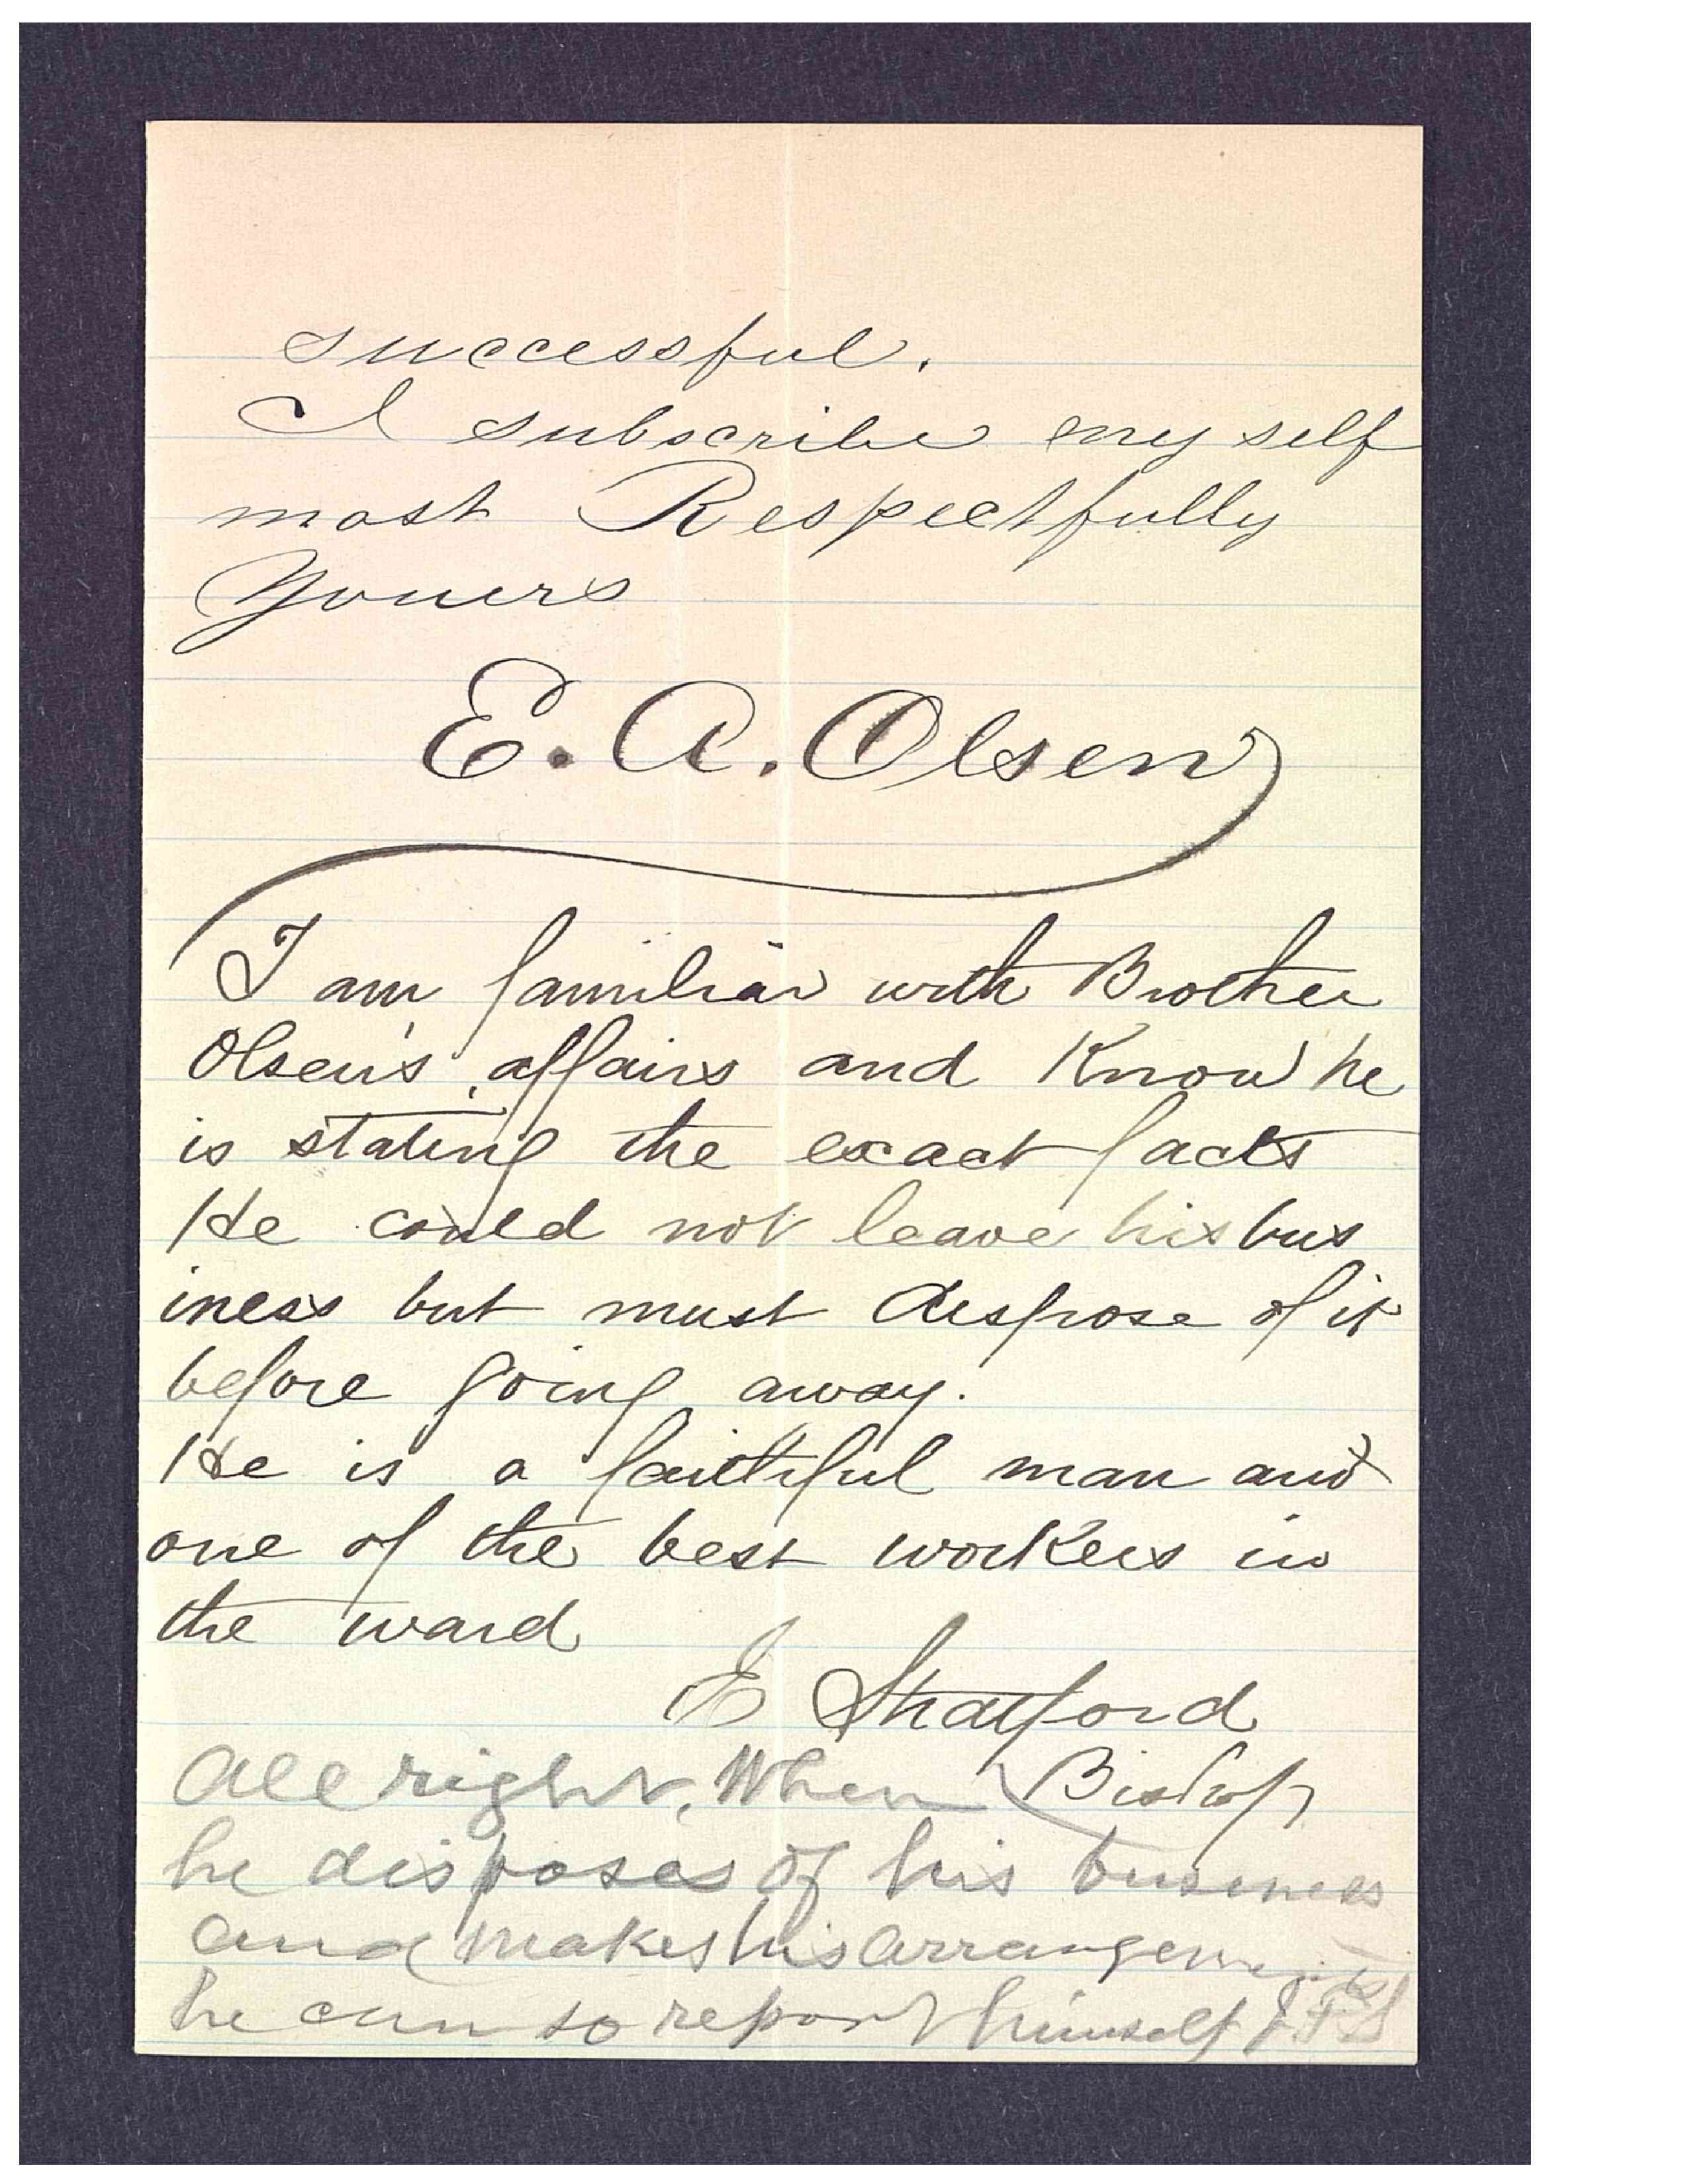 successful.
I subscribe my self
most Respectfully
Yours
E. A. Olsen
I am familiar with Brother
Olsen's affairs and Know he
is stating the exact facts
He could not leave his bus
iness but must dispose of it
before going away.
He is a faithful man and
one of the best workers in
the ward
E Stratford
Bishop
All right, When
he disposes of his business
and makes his arrangements
he can so report himself J.F.S